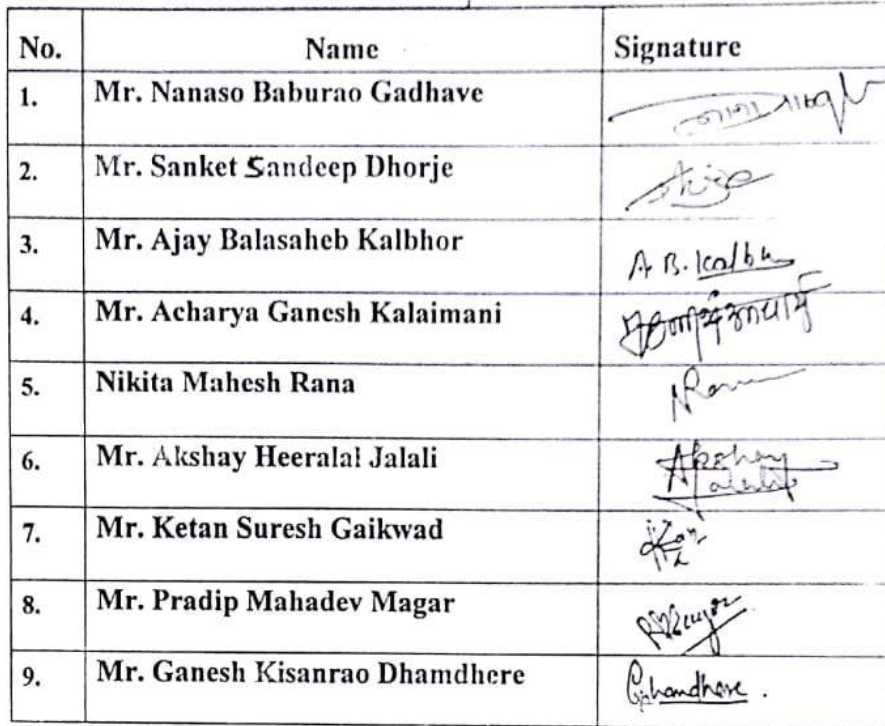 No. Name Signature
1. Mr. Nanaso Baburao Gadhave
2. Mr. Sanket Sandeep Dhorje
3. Mr. Ajay Balasaheb Kalbhor A. B. Kalbh
4. Mr. Acharya Ganesh Kalaimani
5. Nikita Mahesh Rana
6. Mr. Akshay Heeralal Jalali Akshay
7. Mr. Ketan Suresh Gaikwad
8. Mr. Pradip Mahadev Magar
9. Mr. Ganesh Kisanrao Dhamdhere